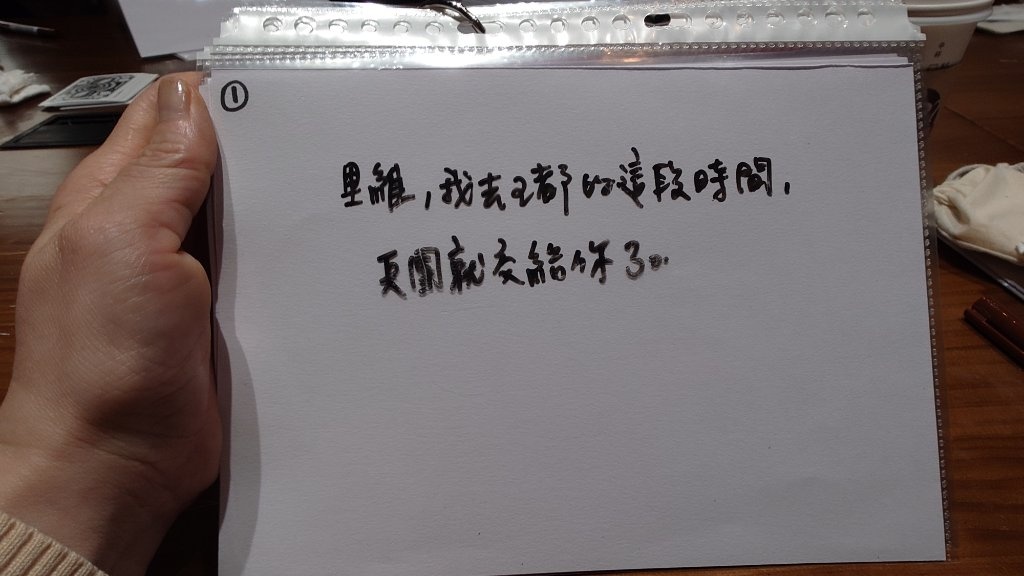 ①
里維，我去王都的這段時間，
天閣就交給你了。